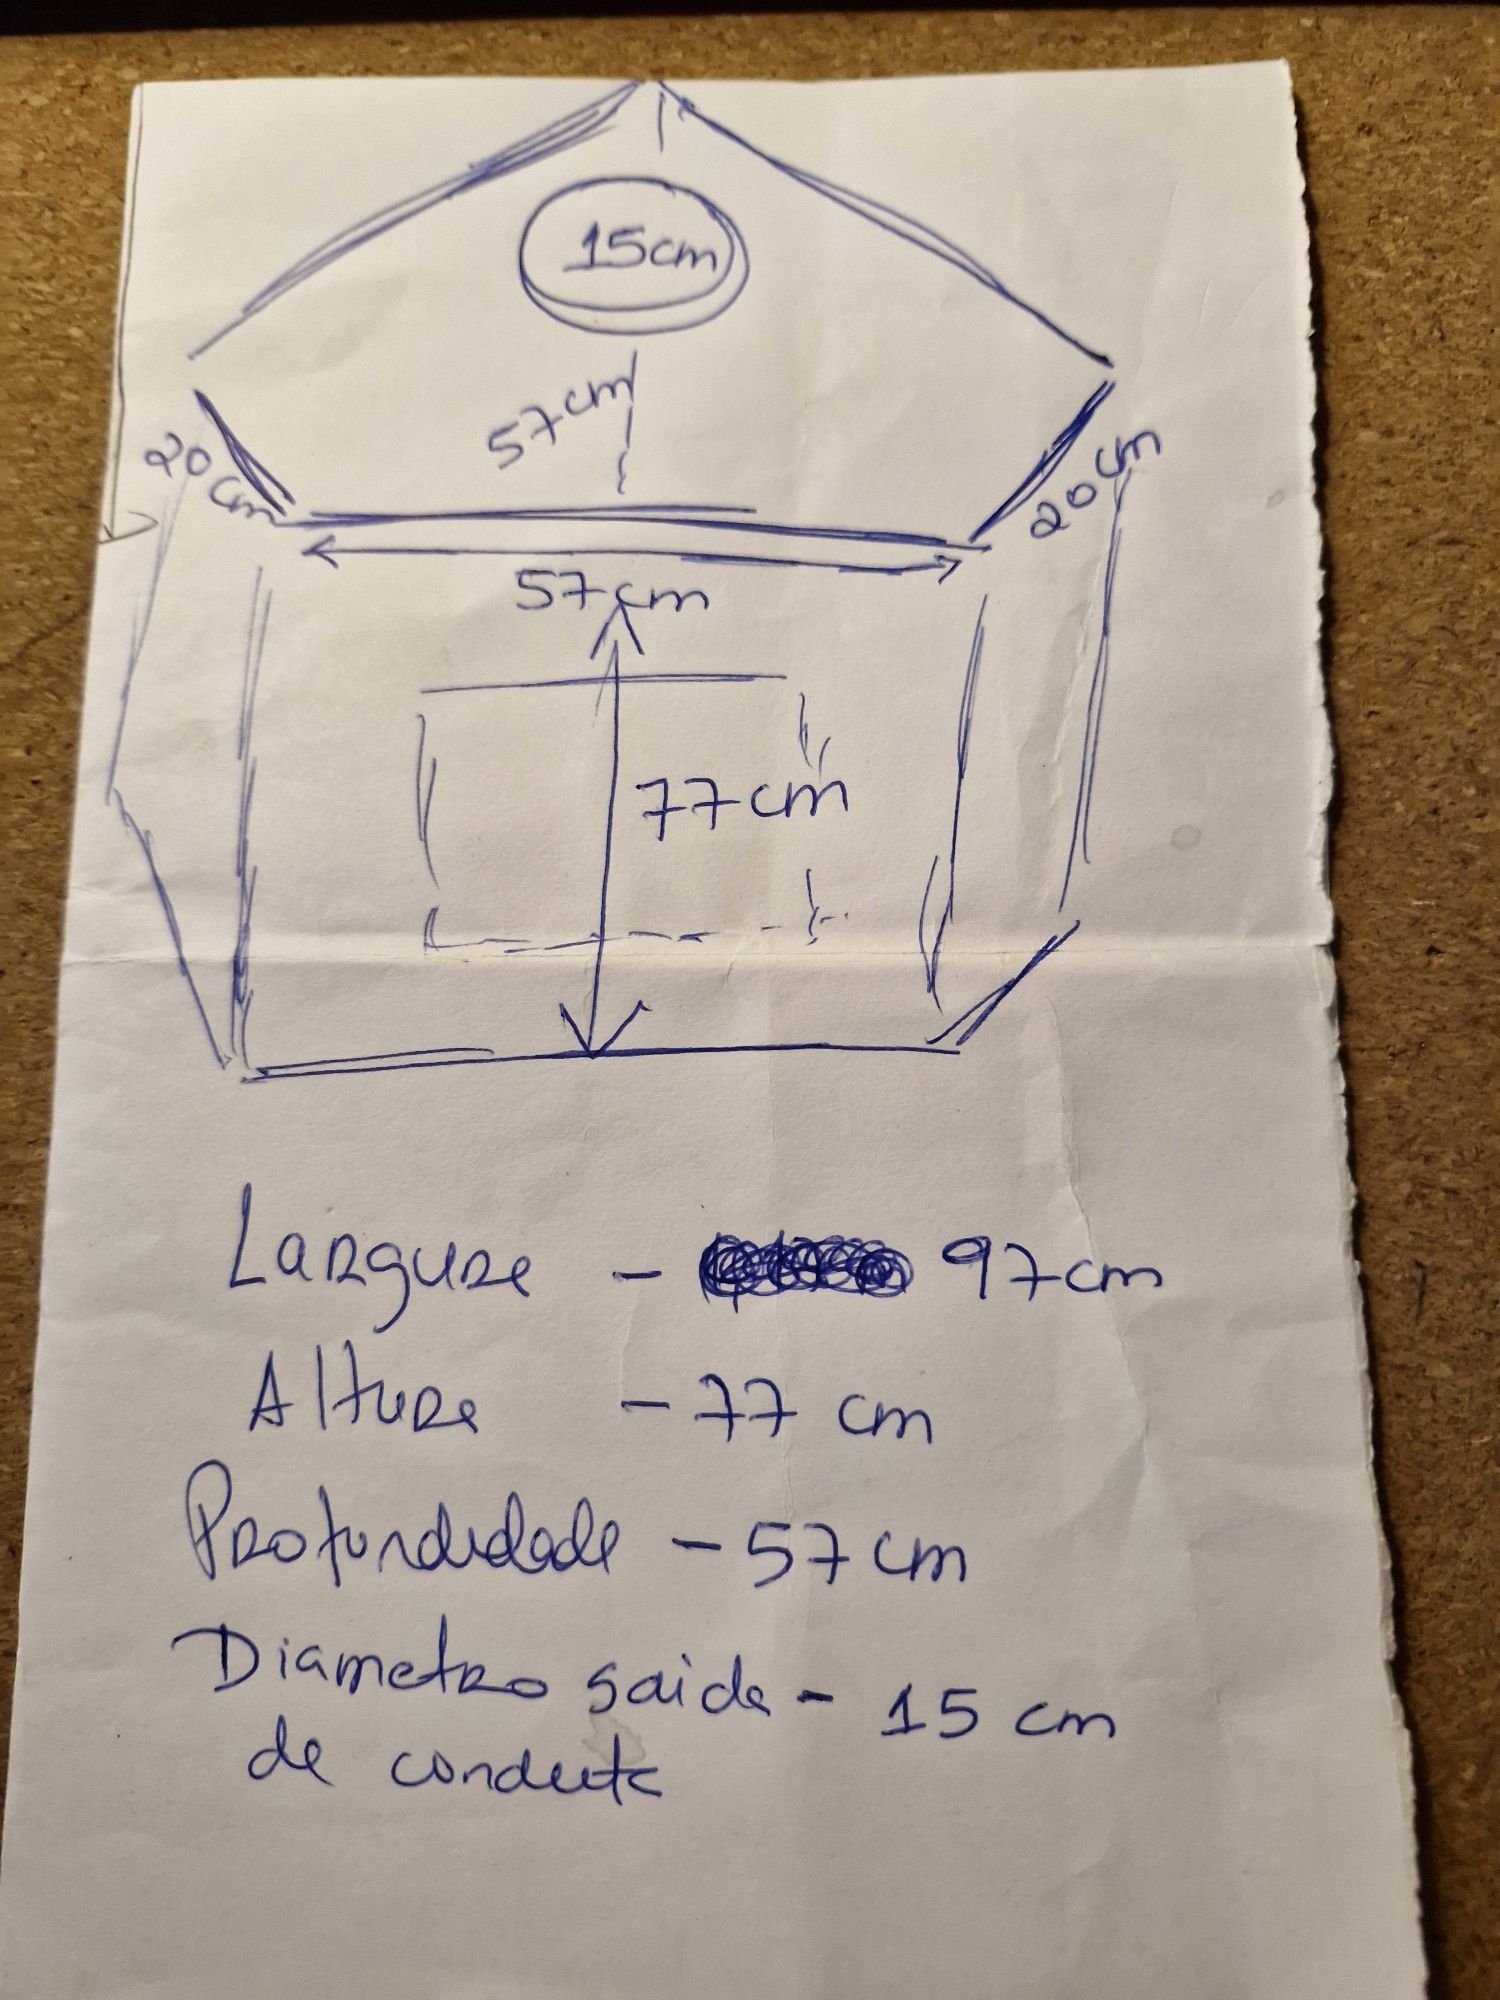 15cm
57cm
20cm
20cm
57cm
77cm
Largura - 97cm
Altura - 77 cm
Profundidade - 57 cm
Diametro saida - 15 cm
de conduta